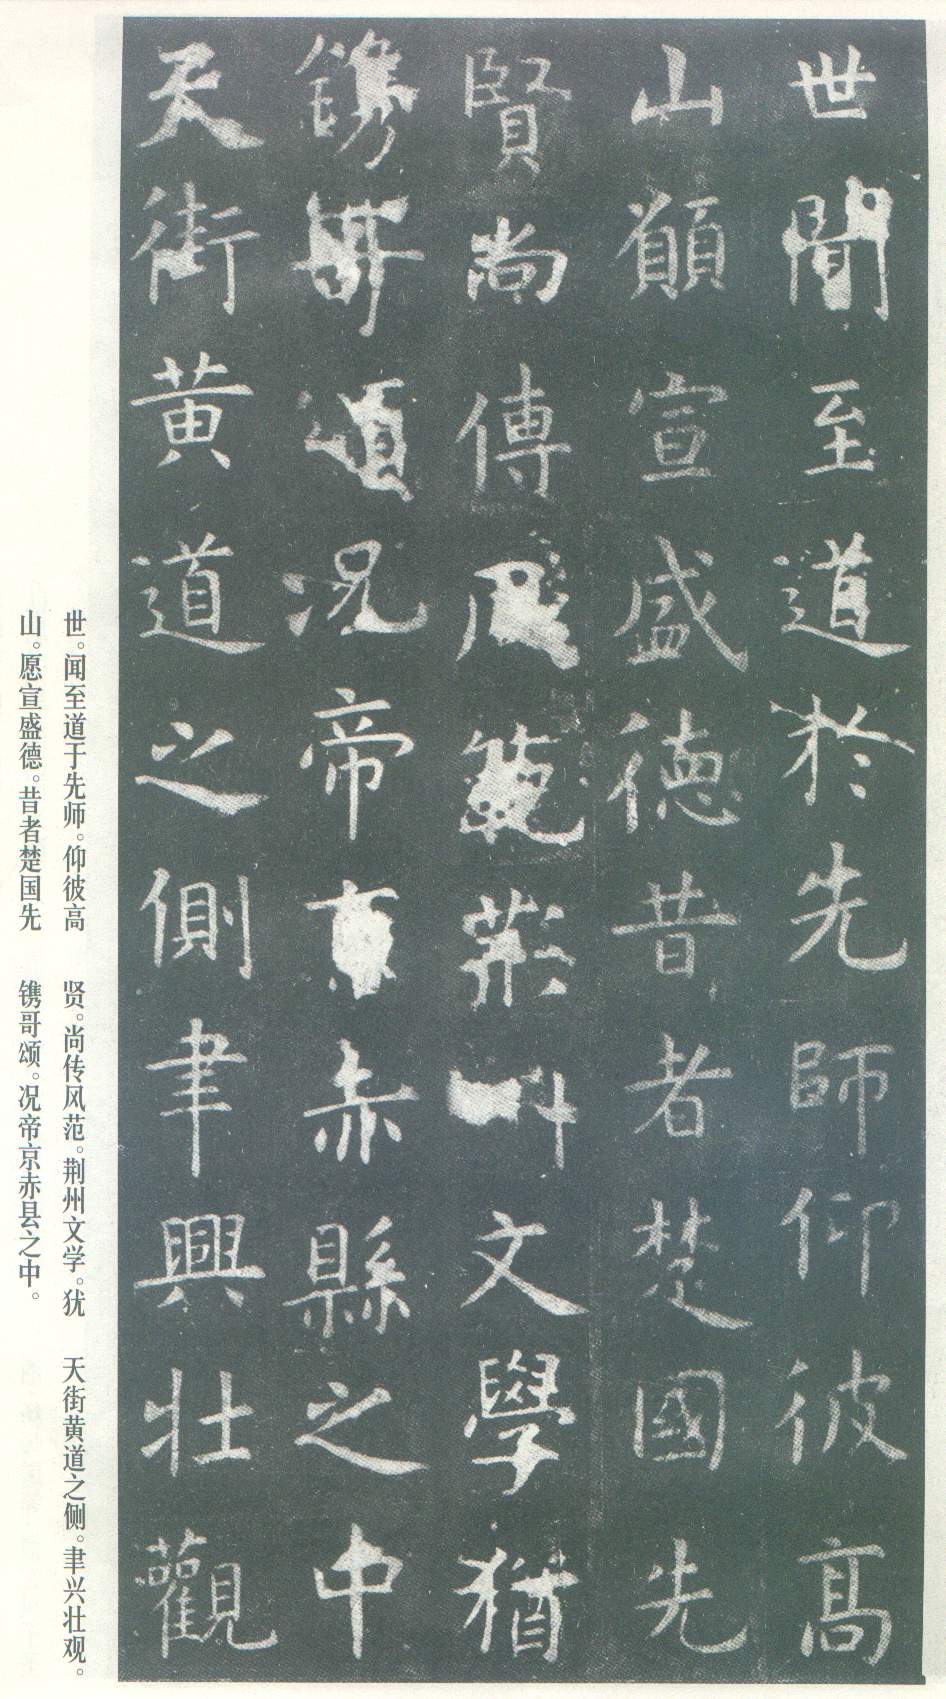 世聞至道於先師仰彼高
山願宣盛德昔者楚國先
賢尚傳風範荆州文學猶
鐫哥頌況帝京赤縣之中
天街黄道之側聿興壯觀
世。闻至道于先师。仰彼高
山。愿宣盛德。昔者楚国先
贤。尚传风范。荆州文学。犹
镌哥颂。况帝京赤县之中。
天街黄道之侧。聿兴壮观。